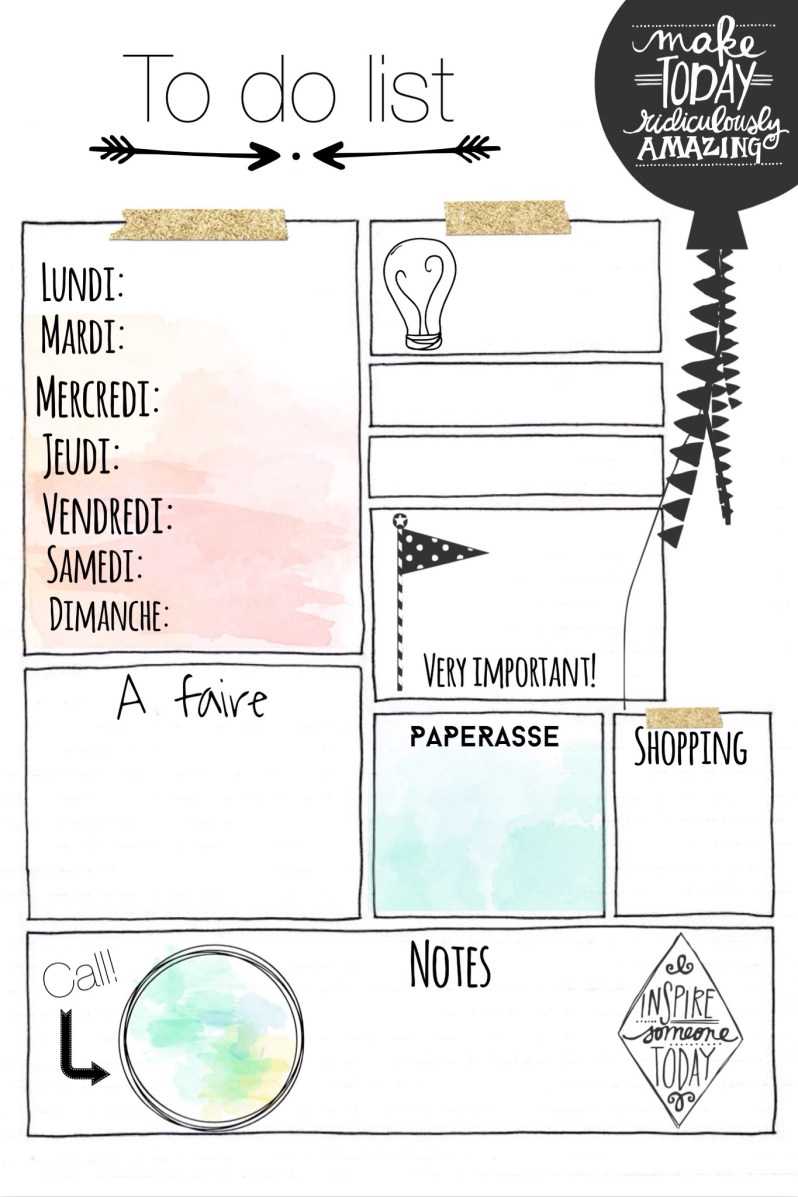 To do list
make
TODAY
ridiculously
AMAZING
LUNDI:
MARDI:
MERCREDI:
JEUDI:
VENDREDI:
SAMEDI:
DIMANCHE:
VERY IMPORTANT!
A faire
PAPERASSE
SHOPPING
Call!
NOTES
INSPIRE
someone
TODAY